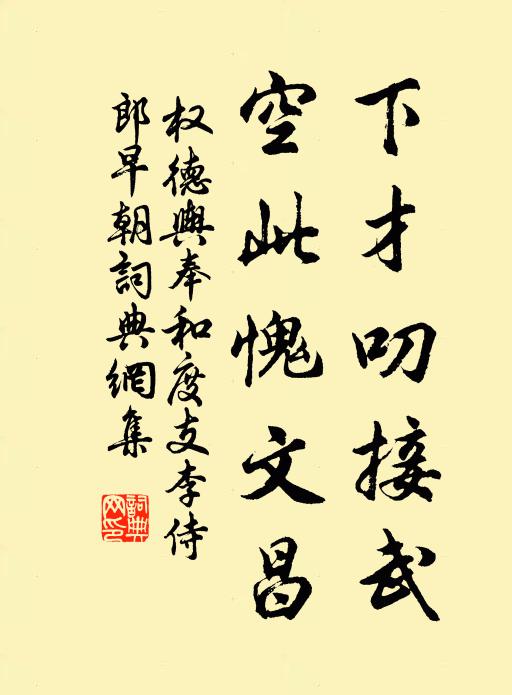 下才叨接武
空此愧文昌
权德舆奉和度支李侍
郎早朝詞典網集
詞典
网印